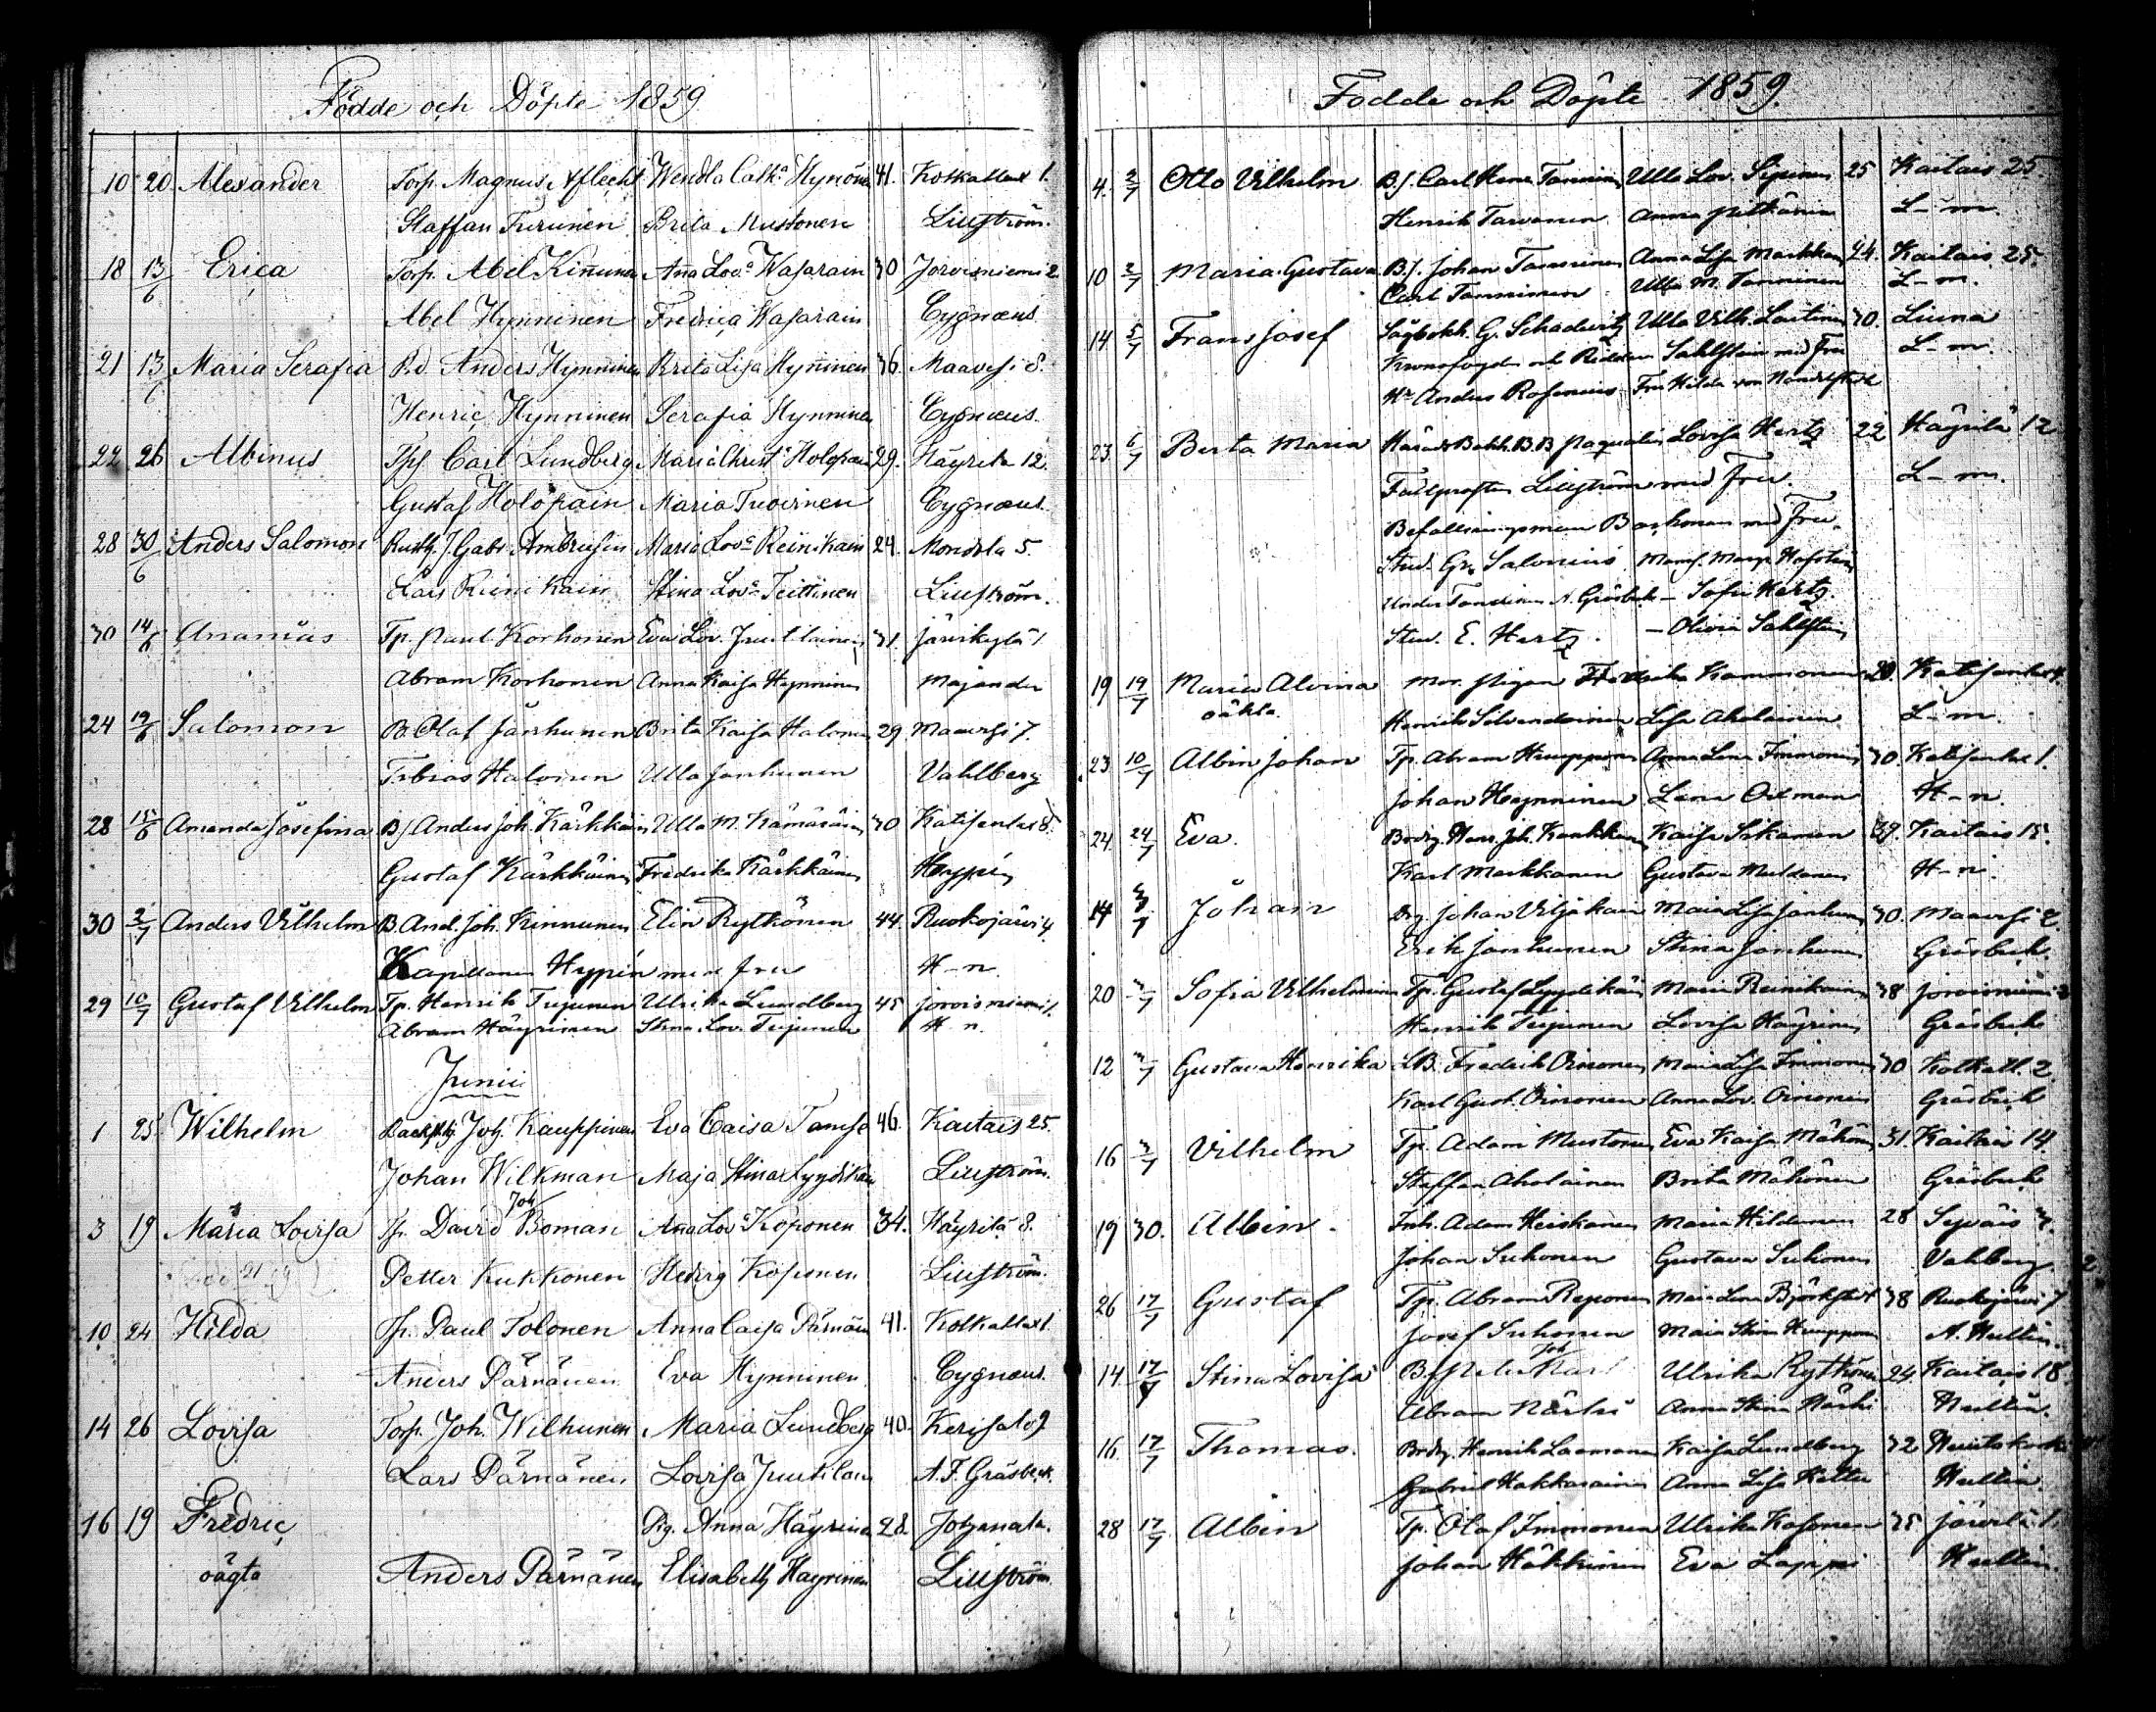 Födde och Döpte 1859
10 20 Alexander Torp. Magnus Aflecht Wendla Cath:a Hynöne 41. Kolkallax 1.
Staffan Turunen Brita Mustonen Liljström.
18 13/6 Erica Torp. Abel Kinnunen Anna Lov:a Wasarain 30 Joroisniemi 2.
Abel Hynninen Fredrica Wasarain Cygnæus
21 13/6 Maria Serafia Rd Anders Hynninen Brita Lisa Hynninen 36. Maavesi 8.
Henric Hynninen Serafia Hynninen Cygnæus.
22 26 Albinus Tpf Carl Lundberg Maria Christ:a Holopain 29. Häyrilä 12.
Gustaf Holopain Maria Tuovinen Cygnæus.
28 30/6 Anders Salomon J. Gabr. Ambrusin Maria Lov:a Reinikain 24. Montola 5.
Lars Reinikain Stina Lov:a Teittinen Liljström.
30 14/6 Ananias Tp. Paul Korhonen Eva Lov. Juutilainen 31. Järvikylä 1
Abram Korhonen Anna Kaisa Hynninen Majander
24 19/6 Salomon B. Olaf Janhunen Brita Kaisa Halonen 29 Maavesi 7.
Tobias Halonen Ulla Janhunen Vahlberg
28 15/6 Amanda Josefina Bf Anders Joh. Kärkkäin Ulla M. Kämäräin 30 Katisenlax 8.
Gustaf Kärkkäinen Fredrika Kärkkäinen Hypén
30 2/7 Anders Vilhelm B. And. Joh. Kinnunen Elin Rytkönen 44. Ruokojärvi 4.
Kapellanen Hypén med fru H-n.
29 10/7 Gustaf Vilhelm Tp. Henrik Tujunen Ulrika Lundberg 45 Joroisniemi 1.
Abram Häyrinen Stina Lov. Tujunen H n.
Junii
1 25 Wilhelm Joh. Kauppinen Eva Caisa Tamse 46. Kaitais 25.
Johan Wilkman Maja Stina Lyydikäin Liljström.
3 19 Maria Lovisa Tp. David Joh Boman Anna Lov:a Koponen 34. Häyrilä 8.
Petter Kukkonen Hedvig Koponen Liljström.
10 24 Hilda Tp. Paul Tolonen Anna Caisa Pärnäin 41. Kolkallax 1.
Anders Pärnänen Eva Hynninen Cygnæus.
14 26 Lovisa Torp. Joh. Wilhunen Maria Lundberg 40. Kerisalo 9
Lars Pärnänen Lovisa Juutilain A. F. Gräsbeck.
16 19 Fredric Pig. Anna Häyrinen 28.
oägta Anders Pärnänen Elisabeth Häyrinen Liljström
Födde och Döpte 1859.
4. 2/7 Otto Vilhelm Bf. Carl Tanninen Ulla Lov. Sipinen 25 Kaitais 25
Henrik Tarvanen Anna Pitkänen L-m.
10 2/7 Maria Gustava Bf. Johan Tanninen Anna Lisa Markkan 44. Kaitais 25.
Carl Tanninen Ulla M. Tanninen L-m.
14 5/7 Frans Josef G. Schadevitz Ulla Vilh. Laitinen 30. Liuna
Kronofogden och Riddaren Sahlstein med Fru L-m.
Hr Anders Rosenius Fru Hilda von
23. 6/7 Berta Maria B. B. Lovisa Hertz 22 Häyrilä 12
Liljström med Fru. L-m.
Befallningsman Backman med Fru.
Stud. Salonius
A. Gräsbeck - Sofia Hertz.
Stud. E. Hertz. - Olivia Sahlstein
19 19/7 Maria Alvina Fredrika Kammonen 20. Katisenlax 4.
oäkta Henrik Silvendoinen Lisa Aholainen L-m.
23 10/7 Albin Johan Tp. Abram Huupponen Anna Lena Immonen 30. Katisenlax 1.
Johan Hynninen Lena Oxman H-n.
24. 24/7 Eva. Hans Joh. Kaisa Sikanen 39. Kaitais 15.
Karl Markkanen Gustava H-n.
14 3/7 Johan Johan Viljakain Maria Lisa Janhunen 30. Maavesi 2.
Erik Janhunen Stina Janhunen Gräsbeck.
20 3/7 Sofia Vilhelmina Tp. Gustaf Lyydikäin Maria Reinikainen 38 Joroisniemi 3
Henrik Tujunen Lovisa Häyrinen Gräsbeck
12 3/7 Gustava Henrika LB. Fredrik Oinonen Maria Lisa Immonen 30 Kolkall. 2.
Karl Gust. Oinonen Anna Lov. Oinonen Gräsbeck
16 3/7 Vilhelm Tp. Adam Mustonen Eva Kaisa Mähönen 31. Kaitais 14.
Staffan Aholainen Brita Mähönen Gräsbeck
19 30. Albin. Inh. Adam Heiskanen Maria Hildenen 28 Syväis 7.
Johan Suhonen Gustava Suhonen Vahlberg
26 17/7 Gustaf Tp. Abram Reponen Maia Lena Björkstedt 38 Ruokojärvi 7
Josef Suhonen Maia Stina Huupponen A. Hullin.
14. 17/7 Stina Lovisa Ulrika Rytkönen 24 Kaitais 18.
Abram Närhi Anna Stina Närhi Hullin.
16. 17/7 Thomas. Henrik Laamanen Kaisa Lundberg 32
Gabriel Hakkarainen Anna Lisa Hullin.
28 17/7 Albin Tp. Olaf Immonen Ulrika Kosonen 35
Johan Häkkinen Eva Lappi Hullin.